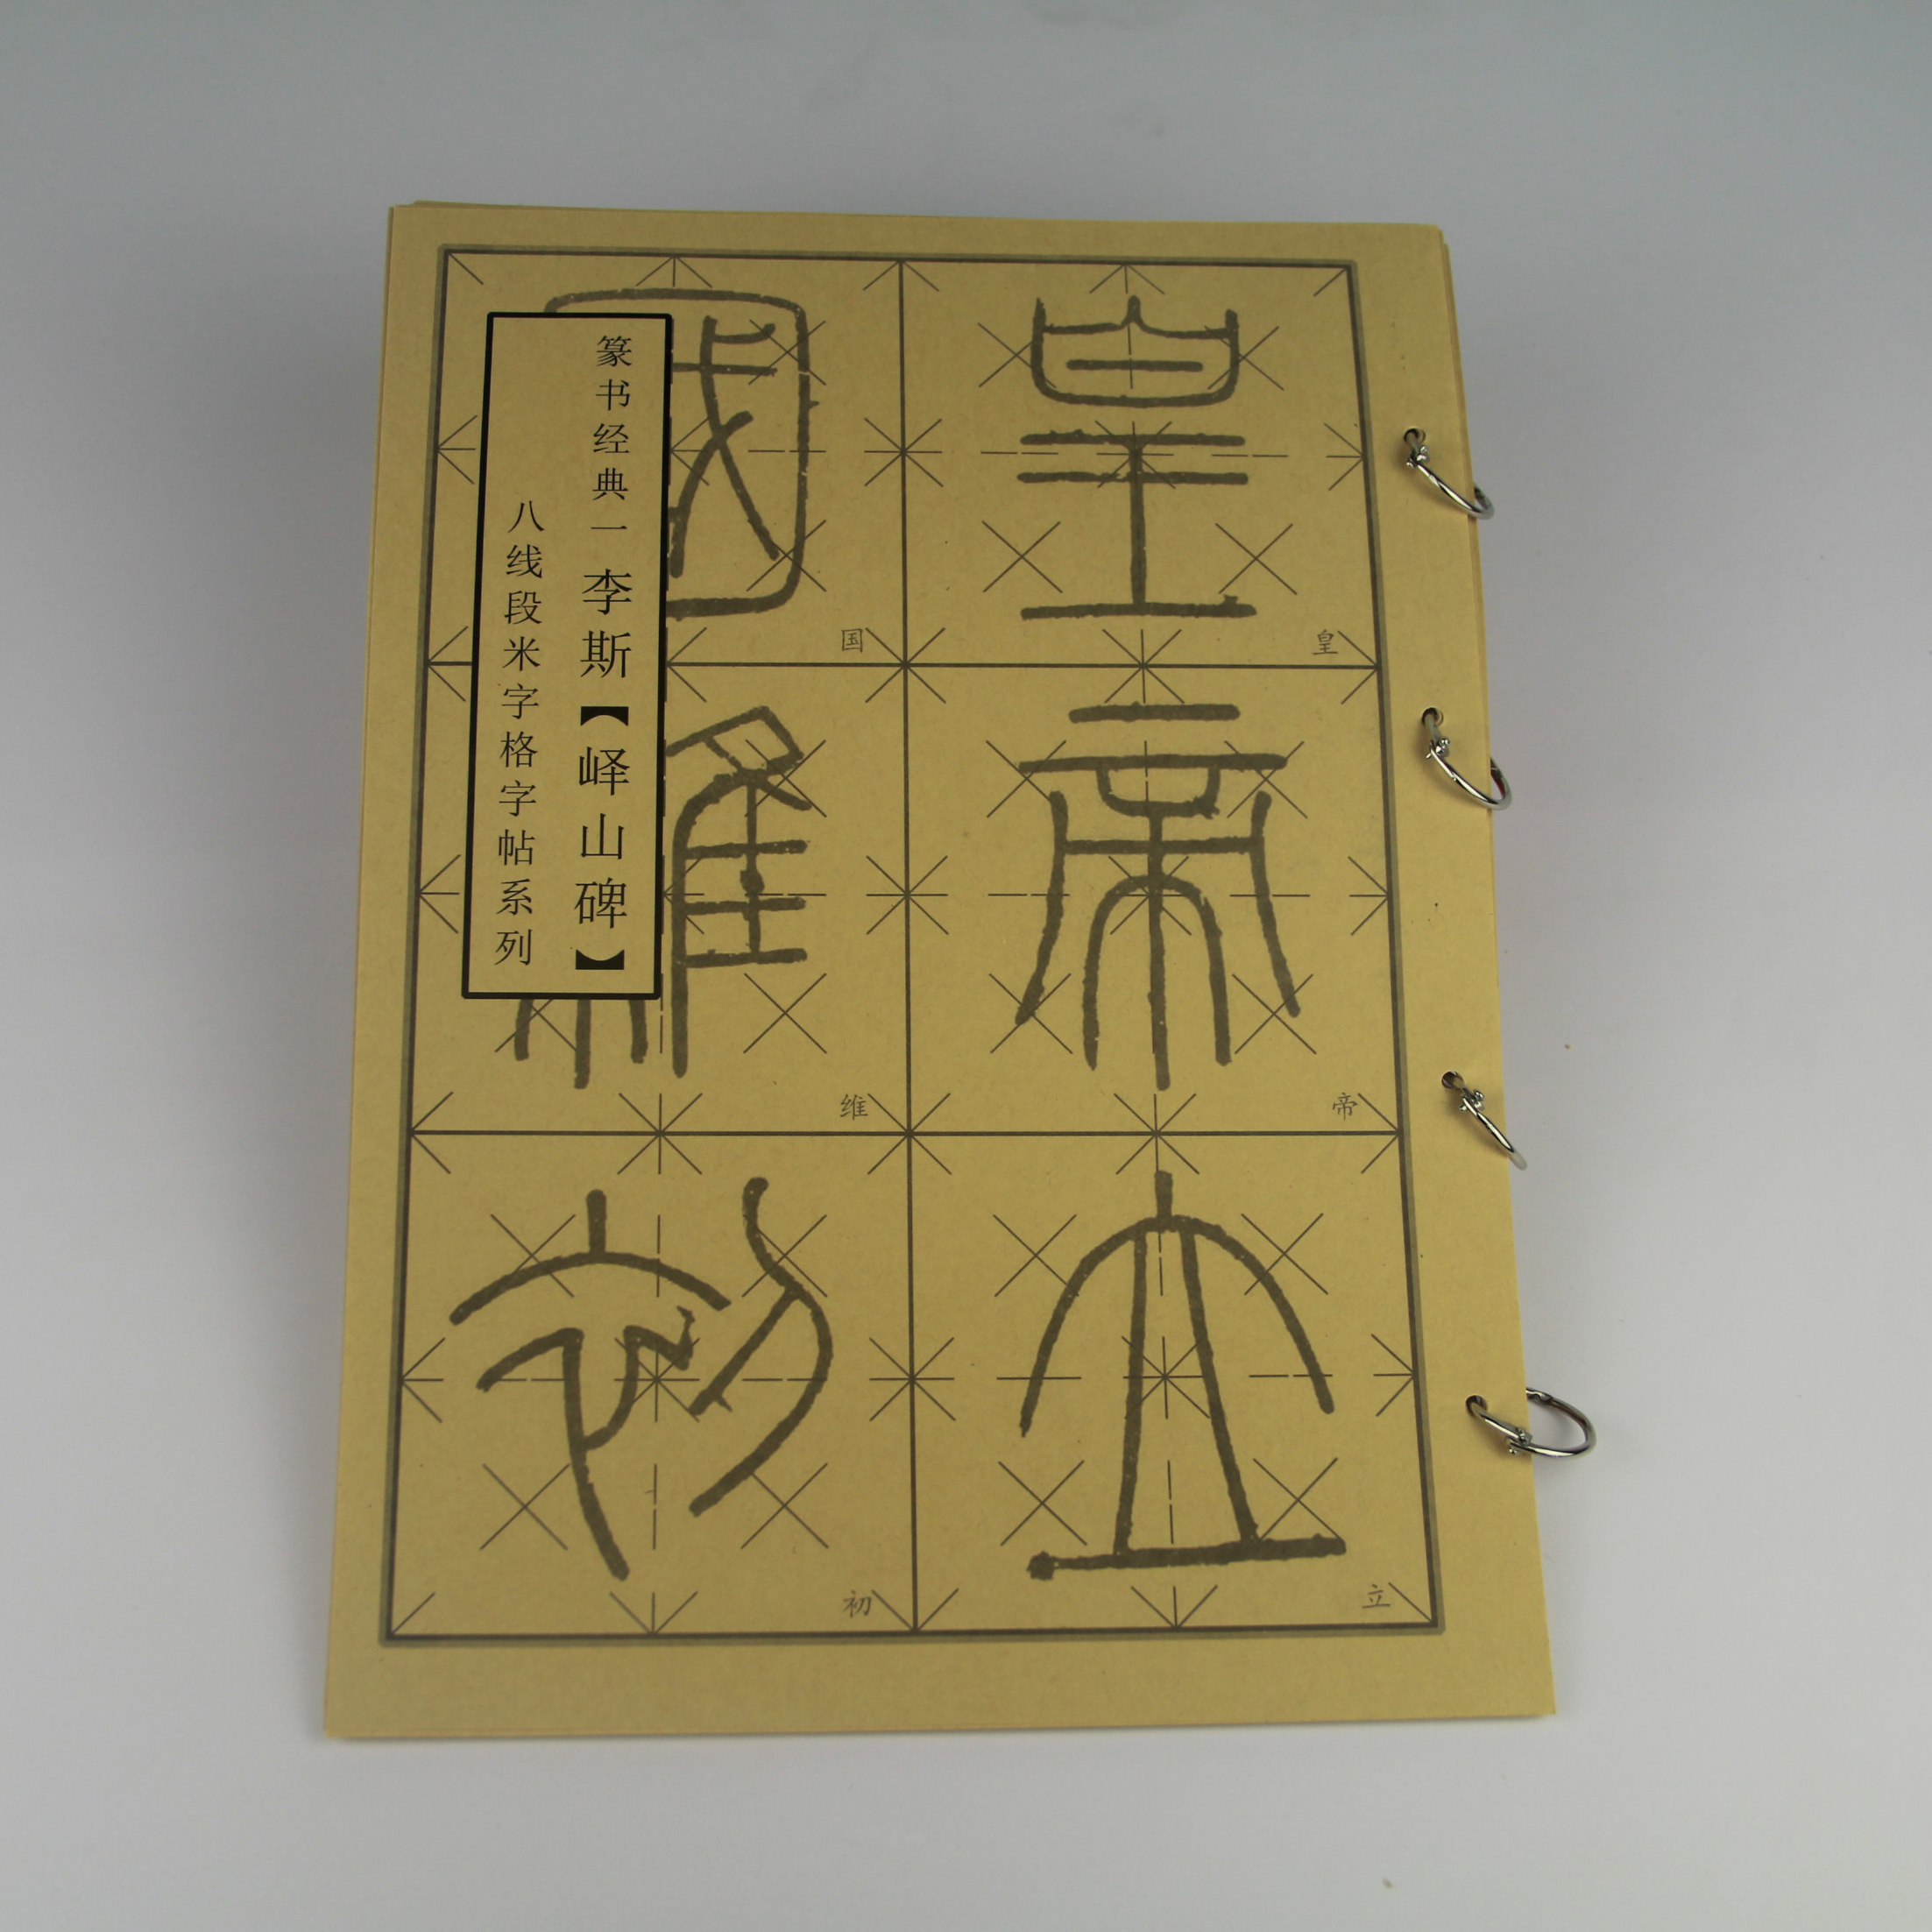 皇帝立
國維初
皇
帝
立
国
维
初
篆书经典一 李斯【峄山碑】
八线段米字格字帖系列